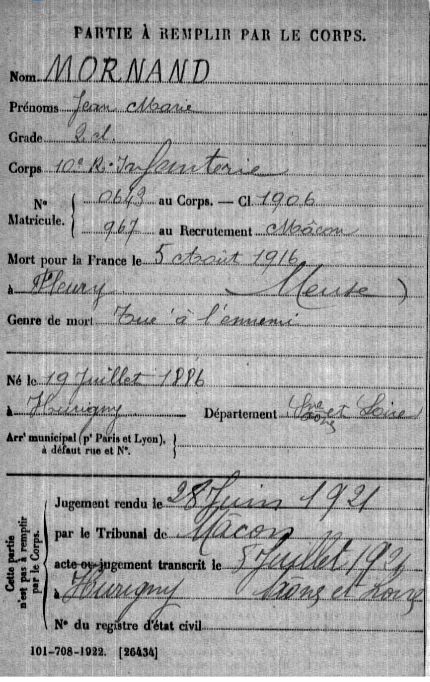 PARTIE À REMPLIR PAR LE CORPS.
Nom MORNAND
Prénoms Jean Marie
Grade 2 cl.
Corps 10e R. Infanterie
N° Matricule. { 0643 au Corps. — Cl. 1906
967 au Recrutement Mâcon
Mort pour la France le 5 Août 1916
à Fleury (Meuse)
Genre de mort Tué à l'ennemi
Né le 19 Juillet 1886
à Hurigny Département Sne et Loire
Arrt municipal (pr Paris et Lyon), à défaut rue et N°. }
Cette partie n'est pas à remplir par le Corps.
Jugement rendu le 28 Juin 1921
par le Tribunal de Mâcon
acte ou jugement transcrit le 5 Juillet 1921
à Hurigny Saône et Loire
N° du registre d'état civil
101-708-1922. [26434]